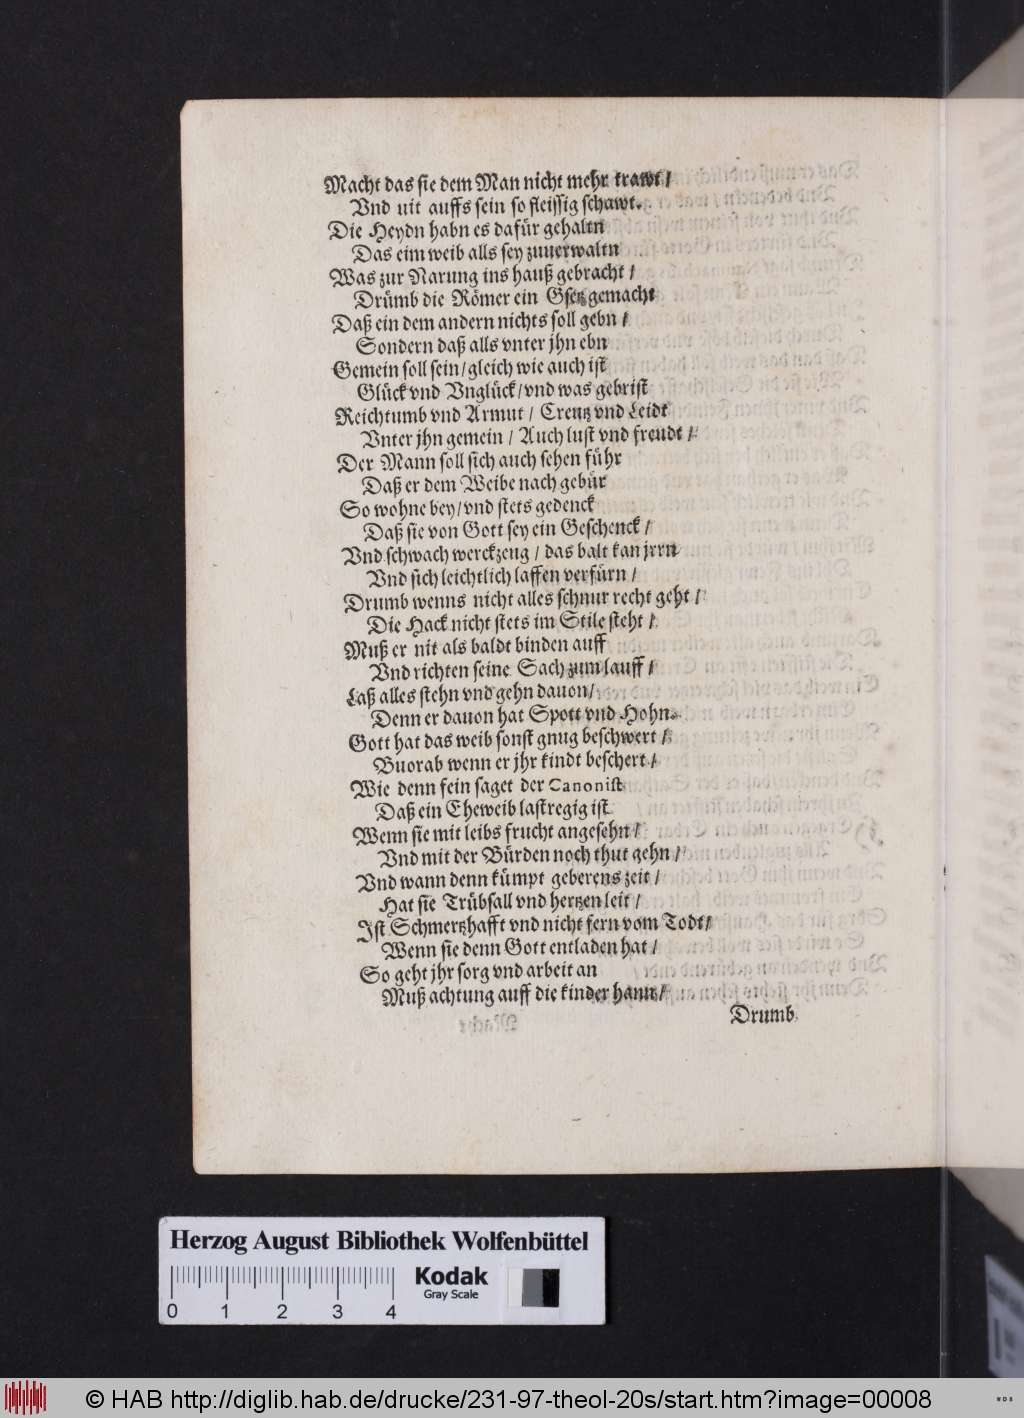 Macht das sie dem Man nicht mehr trawt /
Vnd nit auffs sein so fleissig schawt.
Die Heydn habn es dafür gehaltn
Das eim weib alls sey zuuerwaltn
Was zur Narung ins hauß gebracht /
Drümb die Römer ein Gsetz gemacht
Daß ein dem andern nichts soll gebn /
Sondern daß alls vnter jhn ebn
Gemein soll sein / gleich wie auch ist
Glück vnd Vnglück / vnd was gebrist
Reichtumb vnd Armut / Creutz vnd Leidt
Vnter jhn gemein / Auch lust vnd freudt /
Der Mann soll sich auch sehen führ
Daß er dem Weibe nach gebür
So wohne bey / vnd stets gedenck
Daß sie von Gott sey ein Geschenck /
Vnd schwach werckzeug / das balt kan jrrn
Vnd sich leichtlich lassen verfürn /
Drumb wenns nicht alles schnur recht geht /
Die Hack nicht stets im Stile steht /
Muß er nit als baldt binden auff
Vnd richten seine Sach zum lauff /
Laß alles stehn vnd gehn dauon /
Denn er dauon hat Spott vnd Hohn.
Gott hat das weib sonst gnug beschwert /
Buorab wenn er jhr kindt beschert /
Wie denn fein saget der Canonist
Daß ein Eheweib lastregig ist.
Wenn sie mit leibs frucht angesehn /
Vnd mit der Bürden noch thut gehn /
Vnd wann denn kümpt geberens zeit /
Hat sie Trübsall vnd hertzen leit /
Ist Schmertzhafft vnd nicht fern vom Todt /
Wenn sie denn Gott entladen hat /
So geht jhr sorg vnd arbeit an
Muß achtung auff die kinder hann /
Drumb
Herzog August Bibliothek Wolfenbüttel
Kodak
Gray Scale
0 1 2 3 4
© HAB http://diglib.hab.de/drucke/231-97-theol-20s/start.htm?image=00008